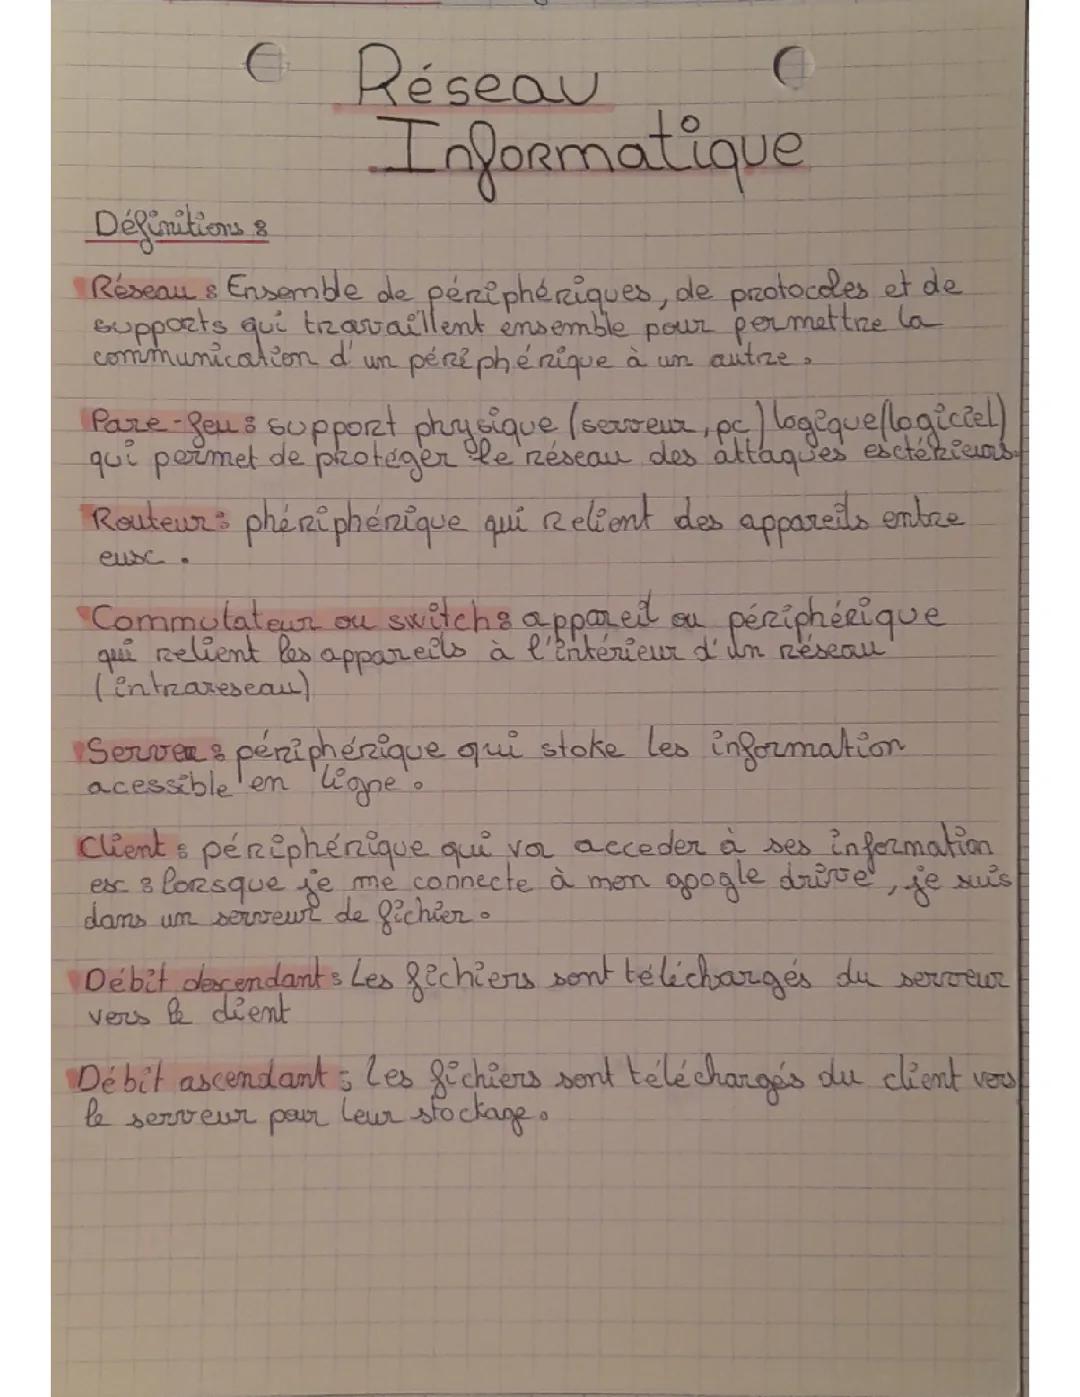 Réseau
Informatique
Définitions :
Réseau : Ensemble de périphériques, de protocoles et de
supports qui travaillent ensemble pour permettre la
communication d'un périphérique à un autre.
Pare-feu : support physique (serveur, pc) logique (logiciel)
qui permet de protéger le réseau des attaques extérieurs.
Routeur : phériphérique qui relient des appareils entre
eux.
Commutateur ou switch : appareil ou périphérique
qui relient les appareils à l'intérieur d'un réseau
(intrareseau)
Server : périphérique qui stoke les information
acessible en ligne.
Client : périphérique qui va acceder à ses information
ex : lorsque je me connecte à mon google drive, je suis
dans un serveur de fichier.
Débit descendant : Les fichiers sont téléchargés du serveur
vers le client
Débit ascendant : Les fichiers sont téléchargés du client vers
le serveur pour leur stockage.